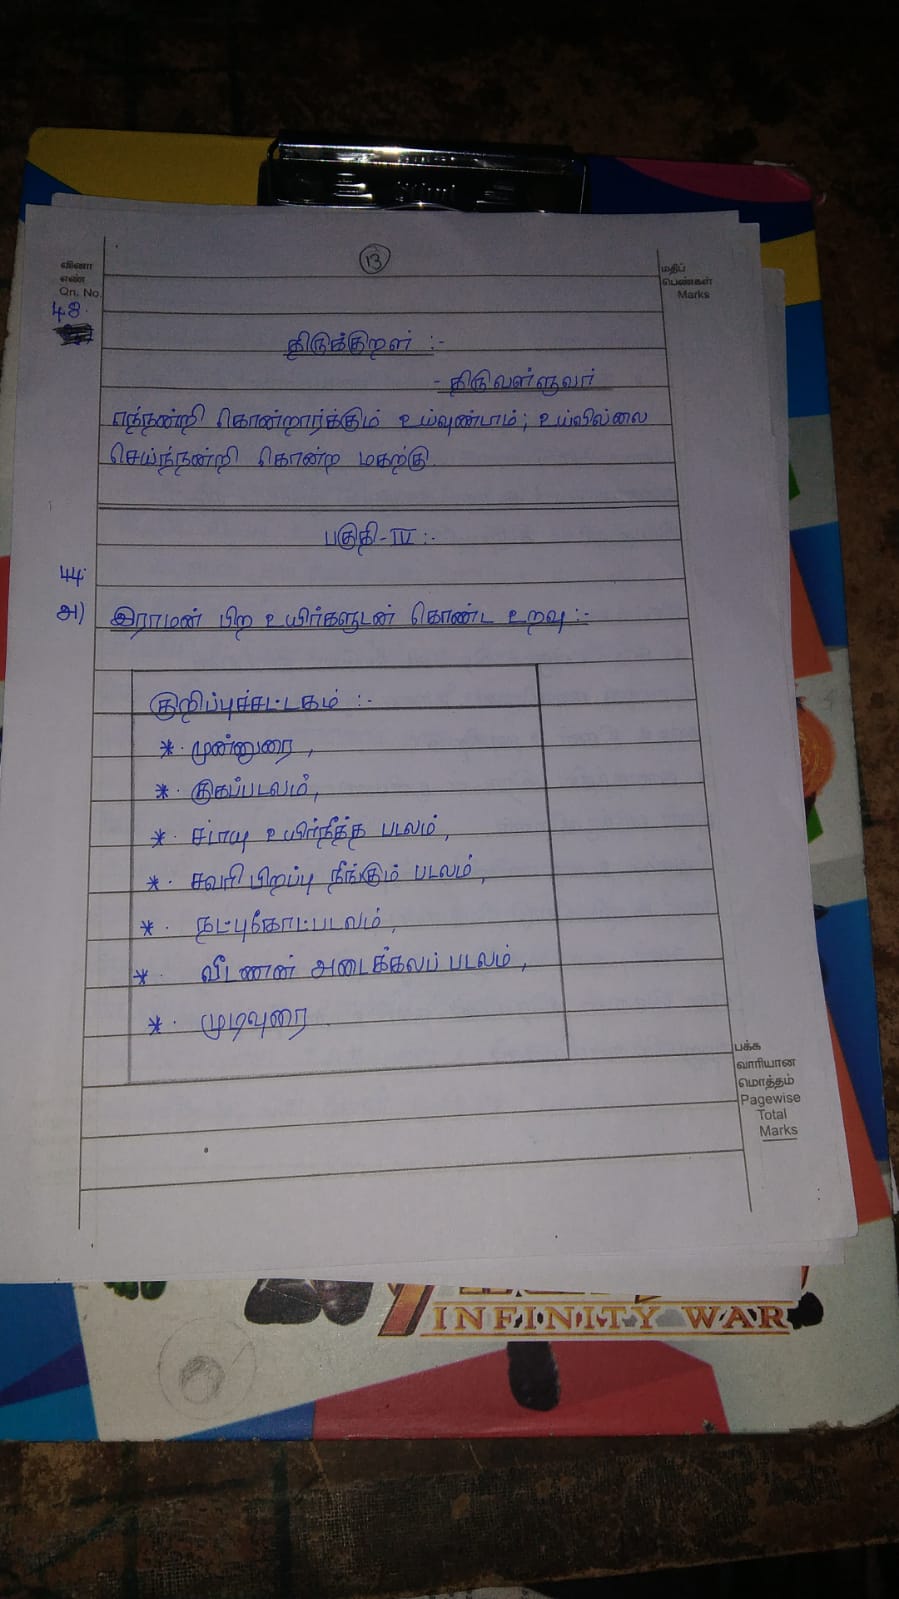 13
வினா
எண்
Qn. No.
மதிப்
பெண்கள்
Marks
43.
திருக்குறள் :-
- திருவள்ளுவர்
எந்நன்றி கொன்றார்க்கும் உய்வுண்டாம்; உய்வில்லை
செய்ந்நன்றி கொன்ற மகற்கு.
பகுதி-IV :-
44.
அ) இராமன் பிற உயிர்களுடன் கொண்ட உறவு :-
குறிப்புச்சட்டகம் :-
*. முன்னுரை,
*. குகப்படலம்,
*. சடாயு உயிர்நீத்த படலம்,
*. சவரி பிறப்பு நீங்கும் படலம்,
*. நட்புகோட்படலம்,
*. வீடணன் அடைக்கலப் படலம்,
*. முடிவுரை.
பக்க
வாரியான
மொத்தம்
Pagewise
Total
Marks
INFINITY WAR